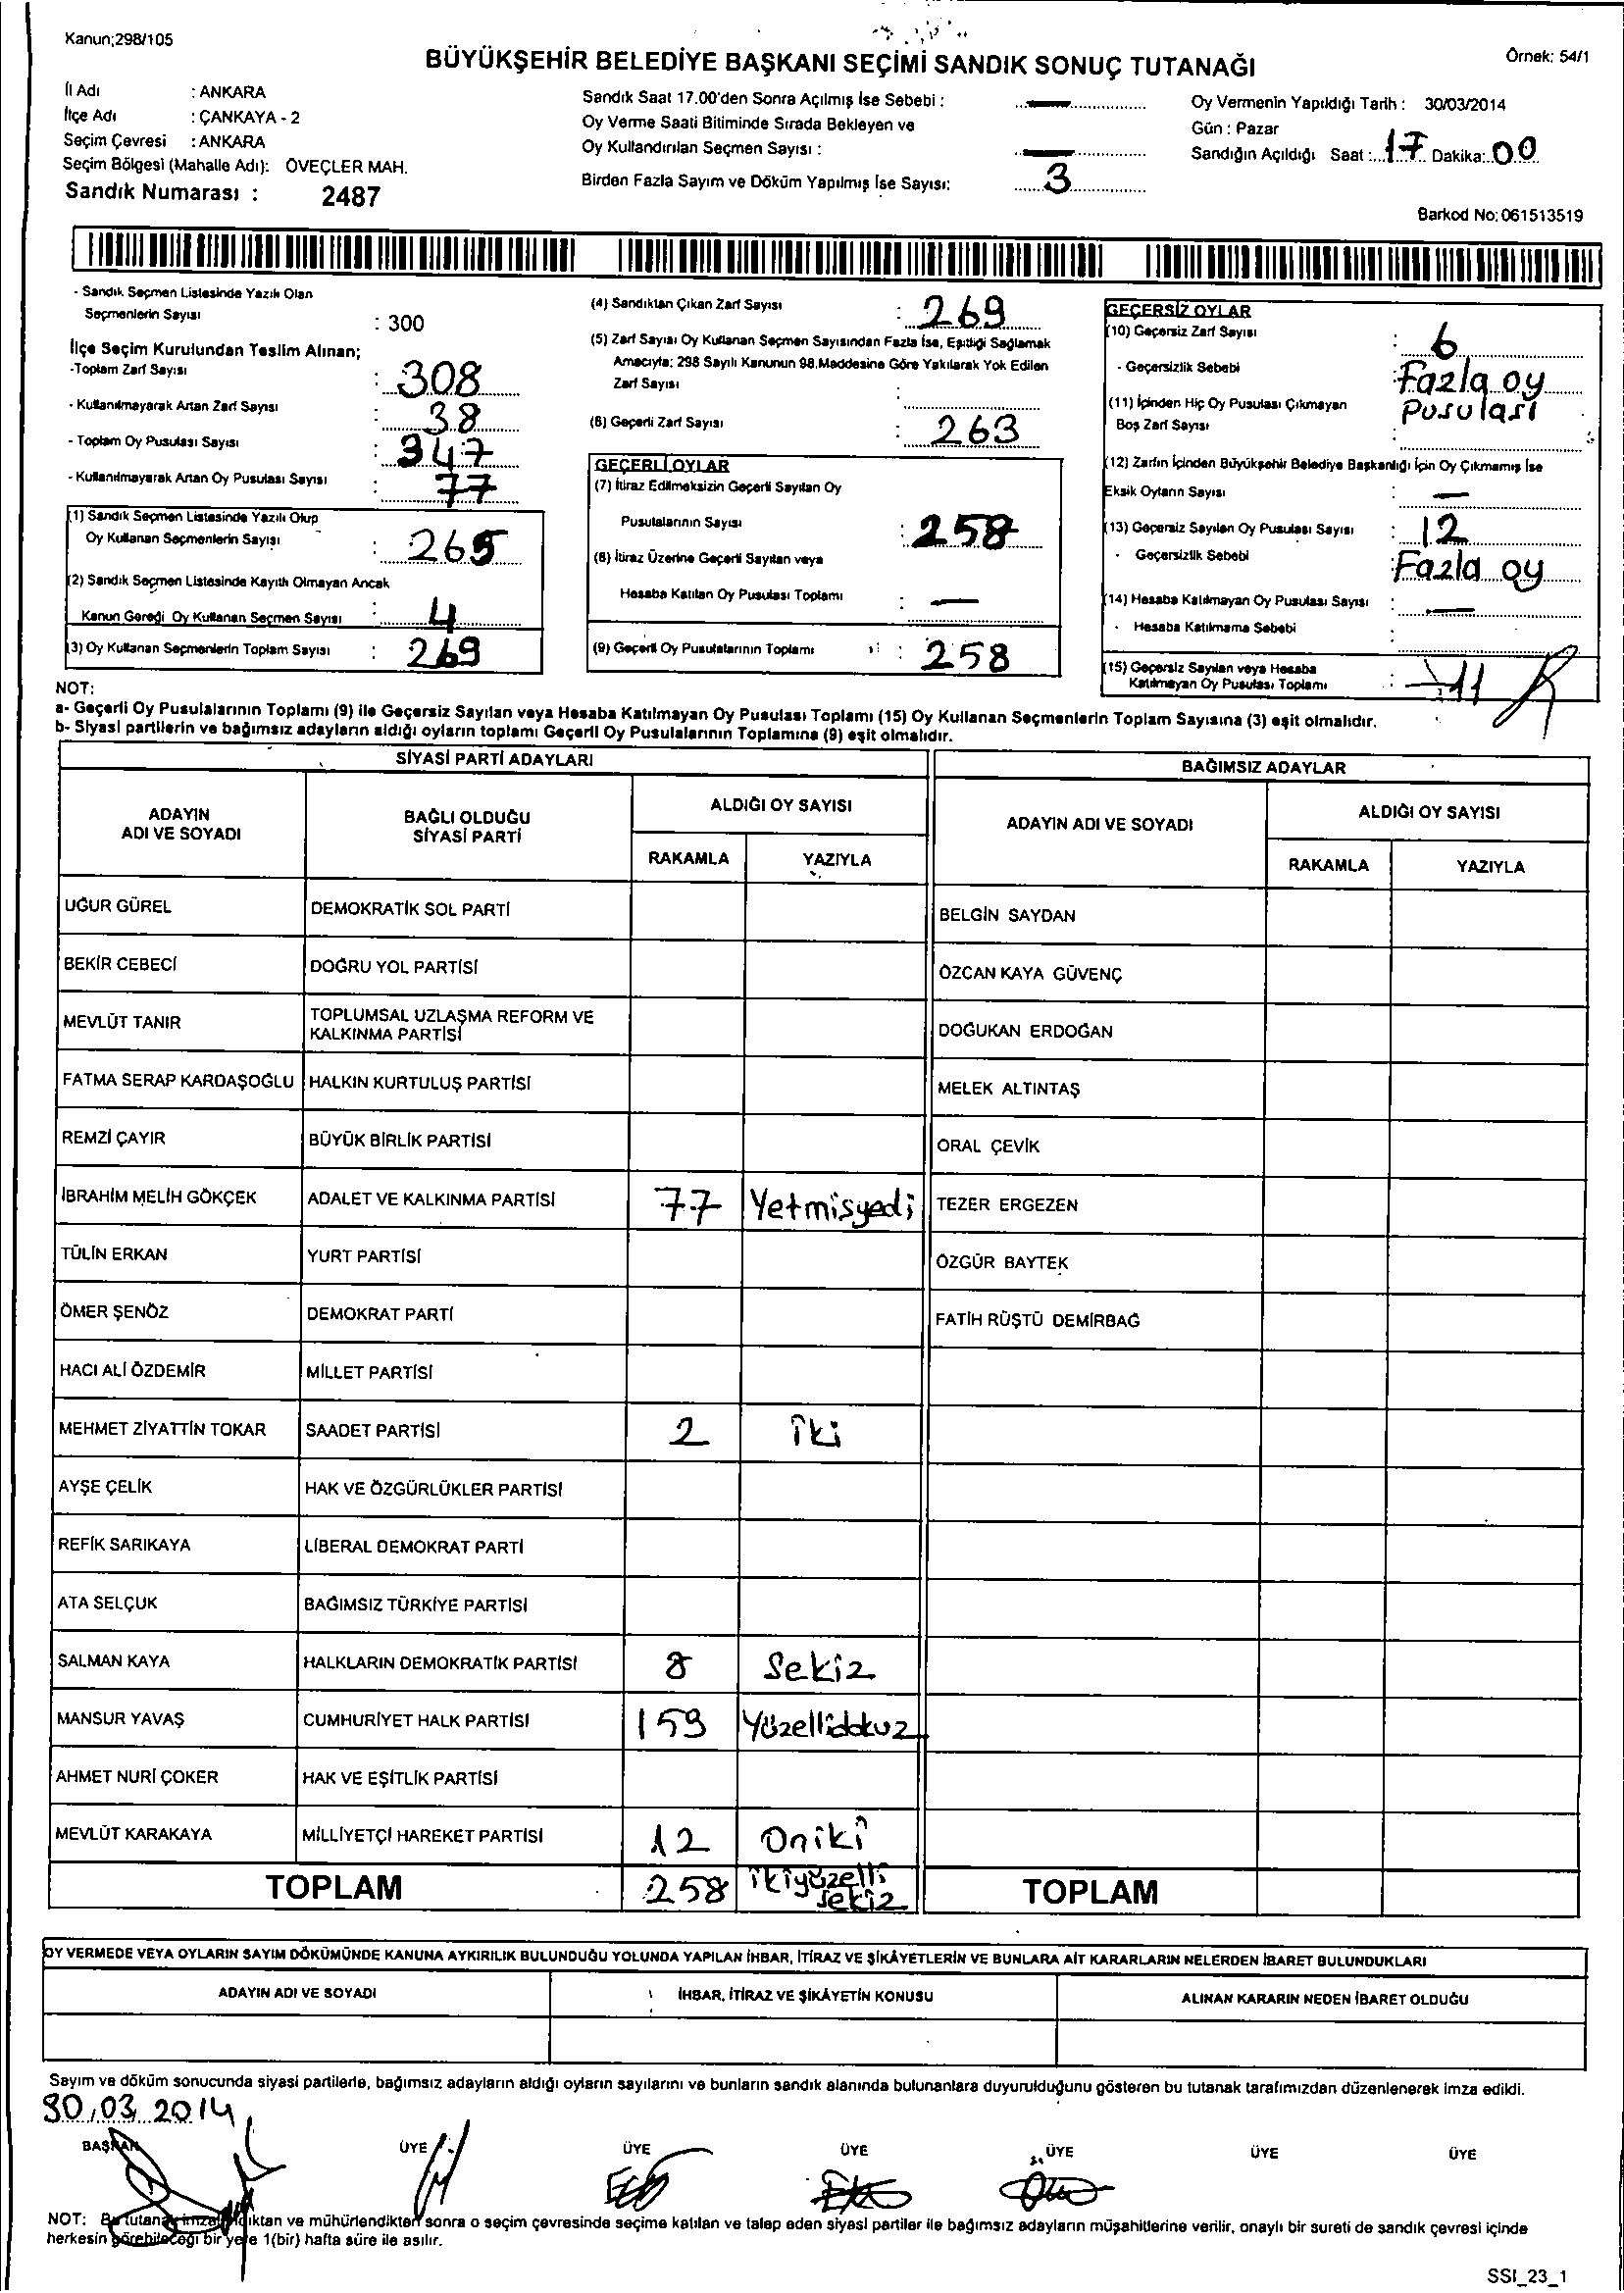 Kanun;298/105
BÜYÜKŞEHİR BELEDİYE BAŞKANI SEÇİMİ SANDIK SONUÇ TUTANAĞI
Örnek: 54/1
İl Adı : ANKARA
İlçe Adı : ÇANKAYA - 2
Seçim Çevresi : ANKARA
Seçim Bölgesi (Mahalle Adı): ÖVEÇLER MAH.
Sandık Numarası : 2487
Sandık Saat 17.00'den Sonra Açılmış İse Sebebi : —
Oy Verme Saati Bitiminde Sırada Bekleyen ve
Oy Kullandırılan Seçmen Sayısı : —
Birden Fazla Sayım ve Döküm Yapılmış İse Sayısı: 3
Oy Vermenin Yapıldığı Tarih : 30/03/2014
Gün : Pazar
Sandığın Açıldığı Saat : 17 Dakika: 00
Barkod No: 061513519
- Sandık Seçmen Listesinde Yazılı Olan
Seçmenlerin Sayısı : 300
İlçe Seçim Kurulundan Teslim Alınan;
-Toplam Zarf Sayısı : 308
- Kullanılmayarak Artan Zarf Sayısı : 38
- Toplam Oy Pusulası Sayısı : 347
- Kullanılmayarak Artan Oy Pusulası Sayısı : 77
(1) Sandık Seçmen Listesinde Yazılı Olup
Oy Kullanan Seçmenlerin Sayışı : 265
(2) Sandık Seçmen Listesinde Kayıtlı Olmayan Ancak
Kanun Gereği Oy Kullanan Seçmen Sayısı : 4
(3) Oy Kullanan Seçmenlerin Toplam Sayısı : 269
(4) Sandıktan Çıkan Zarf Sayısı : 269
(5) Zarf Sayısı Oy Kullanan Seçmen Sayısından Fazla İse, Eşitliği Sağlamak
Amacıyla; 298 Sayılı Kanunun 98.Maddesine Göre Yakılarak Yok Edilen
Zarf Sayısı :
(6) Geçerli Zarf Sayısı : 263
GEÇERLİ OYLAR
(7) İtiraz Edilmeksizin Geçerli Sayılan Oy
Pusulalarının Sayısı : 258
(8) İtiraz Üzerine Geçerli Sayılan veya
Hesaba Katılan Oy Pusulası Toplamı : —
(9) Geçerli Oy Pusulalarının Toplamı : 258
GEÇERSİZ OYLAR
(10) Geçersiz Zarf Sayısı : 6
- Geçersizlik Sebebi : Fazla oy
pusulası
(11) İçinden Hiç Oy Pusulası Çıkmayan
Boş Zarf Sayısı :
(12) Zarfın İçinden Büyükşehir Belediye Başkanlığı İçin Oy Çıkmamış İse
Eksik Oyların Sayısı : —
(13) Geçersiz Sayılan Oy Pusulası Sayısı : 12
- Geçersizlik Sebebi : Fazla oy
(14) Hesaba Katılmayan Oy Pusulası Sayısı : —
- Hesaba Katılmama Sebebi :
(15) Geçersiz Sayılan veya Hesaba
Katılmayan Oy Pusulası Toplamı : 11
NOT:
a- Geçerli Oy Pusulalarının Toplamı (9) ile Geçersiz Sayılan veya Hesaba Katılmayan Oy Pusulası Toplamı (15) Oy Kullanan Seçmenlerin Toplam Sayısına (3) eşit olmalıdır.
b- Siyasi partilerin ve bağımsız adayların aldığı oyların toplamı Geçerli Oy Pusulalarının Toplamına (9) eşit olmalıdır.
SİYASİ PARTİ ADAYLARI
BAĞIMSIZ ADAYLAR
ADAYIN
ADI VE SOYADI
BAĞLI OLDUĞU
SİYASİ PARTİ
ALDIĞI OY SAYISI
RAKAMLA YAZIYLA
ADAYIN ADI VE SOYADI
ALDIĞI OY SAYISI
RAKAMLA YAZIYLA
UĞUR GÜREL DEMOKRATİK SOL PARTİ BELGİN SAYDAN
BEKİR CEBECİ DOĞRU YOL PARTİSİ ÖZCAN KAYA GÜVENÇ
MEVLÜT TANIR TOPLUMSAL UZLAŞMA REFORM VE
KALKINMA PARTİSİ DOĞUKAN ERDOĞAN
FATMA SERAP KARDAŞOĞLU HALKIN KURTULUŞ PARTİSİ MELEK ALTINTAŞ
REMZİ ÇAYIR BÜYÜK BİRLİK PARTİSİ ORAL ÇEVİK
İBRAHİM MELİH GÖKÇEK ADALET VE KALKINMA PARTİSİ 77 Yetmisyedi TEZER ERGEZEN
TÜLİN ERKAN YURT PARTİSİ ÖZGÜR BAYTEK
ÖMER ŞENÖZ DEMOKRAT PARTİ FATİH RÜŞTÜ DEMİRBAĞ
HACI ALİ ÖZDEMİR MİLLET PARTİSİ
MEHMET ZİYATTİN TOKAR SAADET PARTİSİ 2 iki
AYŞE ÇELİK HAK VE ÖZGÜRLÜKLER PARTİSİ
REFİK SARIKAYA LİBERAL DEMOKRAT PARTİ
ATA SELÇUK BAĞIMSIZ TÜRKİYE PARTİSİ
SALMAN KAYA HALKLARIN DEMOKRATİK PARTİSİ 8 Sekiz
MANSUR YAVAŞ CUMHURİYET HALK PARTİSİ 159 Yüzelliddkuz
AHMET NURİ ÇOKER HAK VE EŞİTLİK PARTİSİ
MEVLÜT KARAKAYA MİLLİYETÇİ HAREKET PARTİSİ 12 Oniki
TOPLAM 258 ikiyüzelli
sekiz TOPLAM
OY VERMEDE VEYA OYLARIN SAYIM DÖKÜMÜNDE KANUNA AYKIRILIK BULUNDUĞU YOLUNDA YAPILAN İHBAR, İTİRAZ VE ŞİKÂYETLERİN VE BUNLARA AİT KARARLARIN NELERDEN İBARET BULUNDUKLARI
ADAYIN ADI VE SOYADI İHBAR, İTİRAZ VE ŞİKÂYETİN KONUSU ALINAN KARARIN NEDEN İBARET OLDUĞU
Sayım ve döküm sonucunda siyasi partilerle, bağımsız adayların aldığı oyların sayılarını ve bunların sandık alanında bulunanlara duyurulduğunu gösteren bu tutanak tarafımızdan düzenlenerek imza edildi.
30.03.2014
BAŞKAN ÜYE ÜYE ÜYE ÜYE ÜYE ÜYE
NOT: Bu tutanak ve mühürlendikten sonra o seçim çevresinde seçime katılan ve talep eden siyasi partiler ile bağımsız adayların müşahitlerine verilir, onaylı bir sureti de sandık çevresi içinde
herkesin görebileceği bir yere 1(bir) hafta süre ile asılır.
SSI_23_1